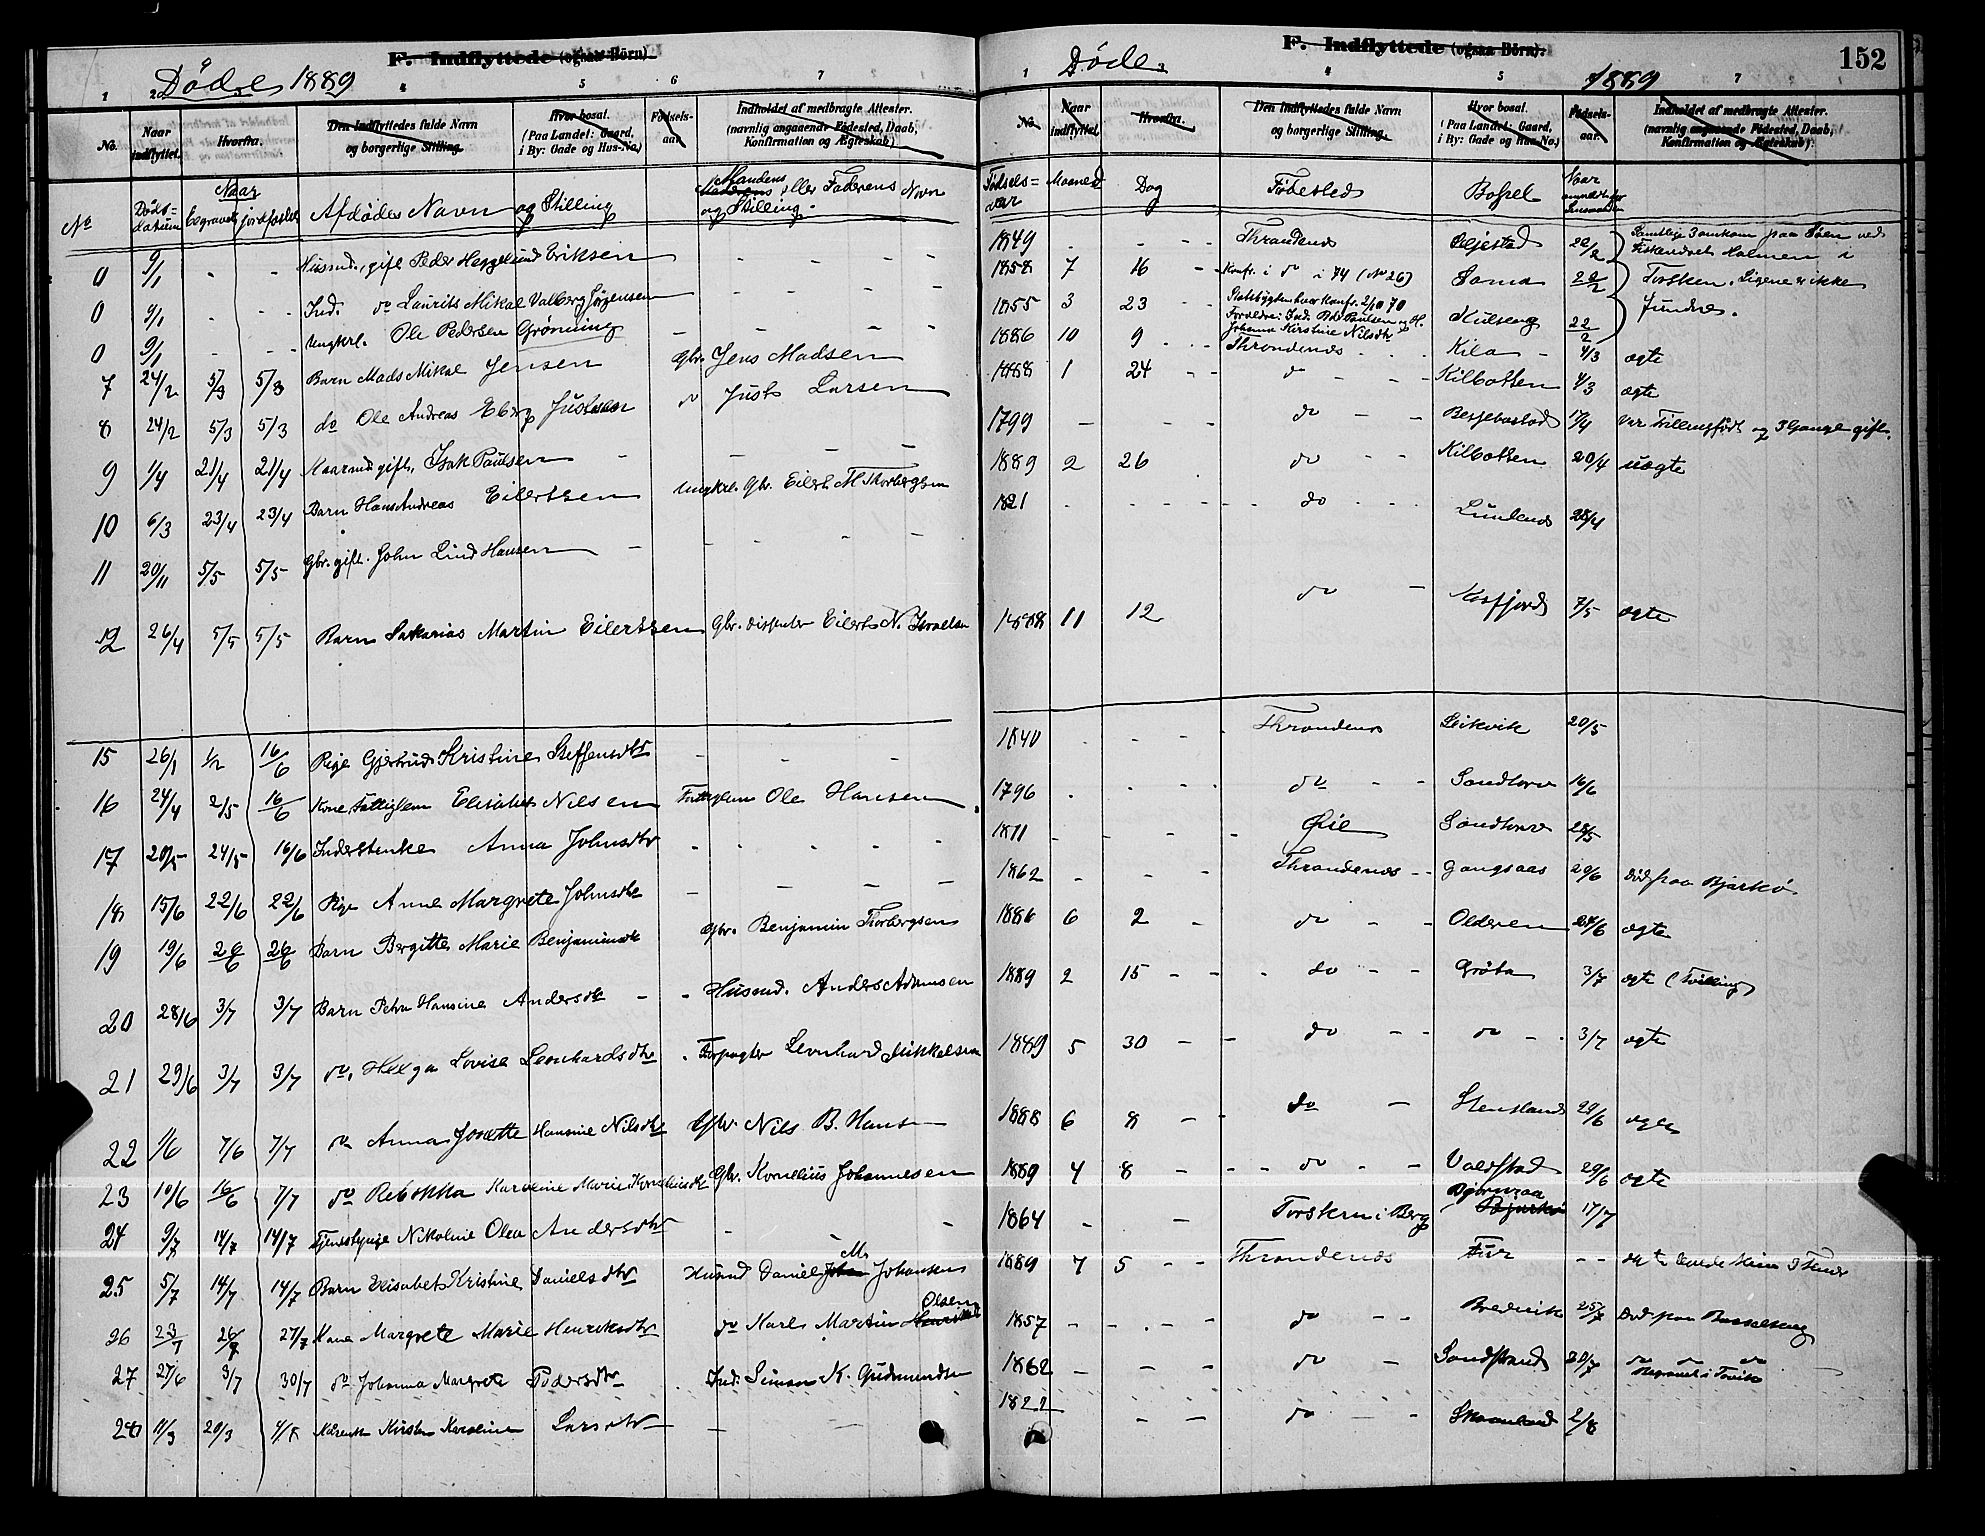 F. Indflyttede (ogsaa Börn).
Döde 1889
1 2 4 5 6 7
No. Naar indflyttet. Hvorfra. Den Indflyttedes fulde Navn og borgerlige Stilling. Hvor bosat. (Paa Landet: Gaard, i By: Gade og Hus-No.) Födsels-aar. Indholdet af medbragte Attester. (navnlig angaaende Födested, Daab, Konfirmation og Ægteskab)
No Döds-datum Naar begravet jordfæstet Afdödes Navn og Stilling Mandens eller Faderens Navn og Stilling.
0 9/1 - - Husmd., gift Peder Heggelund Eriksen - - -
0 9/1 - - Ind. do Laurits Mikal Valberg Jörgensen - - -
0 9/1 - - Ungkrl. Ole Pedersen Grönning - - -
7 24/2 5/3 5/3 Barn Mads Mikal Jensen Gbr. Jens Madsen
8 24/2 5/3 5/3 do Ole Andreas Eberg Justesen do Just Larsen
9 1/4 21/4 21/4 gift, Isak Paulsen - - -
10 6/3 23/4 23/4 Barn Hans Andreas Eilertsen Ungkrl. Gbr. Eilert M Thorbergsen
11 20/11 5/5 5/5 Gbr. gift. John Lind Hansen - - -
12 26/4 5/5 5/5 Barn Sakarias Martin Eilertsen Gbr. Eilert N. Israelsen
15 26/1 1/2 16/6 Pige Gjertrud Kristine Steffensdtr - - -
16 24/4 2/5 16/6 Kone Fattiglem Elisabet Nilsen Fattiglem Ole Hansen
17 20/5 24/5 16/6 Inderstenke Anna Johnsdtr - - -
18 15/6 22/6 22/6 Pige Anne Margrete Johnsdtr - - -
19 19/6 26/6 26/6 Barn Bergitte Marie Benjaminsdtr Gbr. Benjamin Thorbergsen
20 28/6 3/7 3/7 Barn Petra Hansine Andersdtr - Husmd. Anders Adamsen
21 29/6 3/7 3/7 do, Helga Lovise Leonhardsdtr Forpagter Leonhard Mikkelsen
22 1/6 7/6 7/7 do Anna Josette Hansine Nilsdtr Gbr. Nils B. Hansen
23 10/6 16/6 7/7 do Rebekka Karoline Marie Korneliusdtr Gbr. Kornelius Johannesen
24 9/7 14/7 14/7 Tjenestpige Nikoline Olea Andersdtr - - -
25 5/7 14/7 14/7 Barn Elisabet Kristine Danielsdtr Husmd Daniel M. Johansen
26 23/7 26/7 27/7 Kone Margrete Marie Henriksdtr do Karl Martin Olsen
27 27/6 3/7 30/7 do Johanna Margrete Pedersdtr Ind. Simon K. Gudmundsen
28 11/3 20/3 4/8 Kirsten Karoline Larsdtr - -
152
F. Indflyttede (ogsaa Börn).
Döde 1889
1 4 5 7
No. Naar indflyttet. Hvorfra. Den Indflyttedes fulde Navn og borgerlige Stilling. Hvor bosat. (Paa Landet: Gaard, i By: Gade og Hus-No.) Födsels-aar. Indholdet af medbragte Attester. (navnlig angaaende Födested, Daab, Konfirmation og Ægteskab).
Födsels=aar Maaned Dag Födested Bopel Naar anmeldt for
1849 - - - Throndenes 22/2 Samtlige 3 omkom paa Söen ved
1858 7 16 - Konf. i do i 74 (No 26) Sama 22/2 Fiskeværet Holmen i Torsken. Ligene ikke
1855 3 23 - Konf. 2/10 70 22/2 fundne.
Forældre: Ind. Pd. Paulsen og H. Johanna Kirstine Nilsdtr
1886 10 9 - Throndenes Kila - 4/3 ægte
1888 1 24 - do - - Kilbotten 4/3 ægte
1799 - - do - - 17/4 Var og 3 Gange gift.
1889 2 26 do - - Kilbotten 20/4 uægte
1821 - - - do - - Lundenes 28/4
1888 11 12 do - Kasfjord 7/5 ægte
1840 - - - Throndenes Leikvik 20/5
1796 - - - do - - Sandtorv 16/6
1811 - - - Öxe Sandtorv 28/5
1862 - - - Throndenes - Gangsaas 29/6 död paa Bjarkö
1886 6 2 - do - - Olderen 24/6 ægte
1889 2 15 - - do - - Gröta 3/7 ægte (Tvilling)
1889 5 30 - - do - - do - 3/7 ægte
1888 6 8 - - do - Stensland 29/6 ægte
1889 4 8 - - do - - Voldstad 29/6 ægte
1864 - - Torsken i Berg Bjornraa 17/7
1889 7 5 - - Throndenes - -
1857 - - - - do - - Bredvik 25/7 Död paa
1862 - - do - Sandstrand 20/7 do do Begravet i
1822 - - do - - Skaanland 2/8